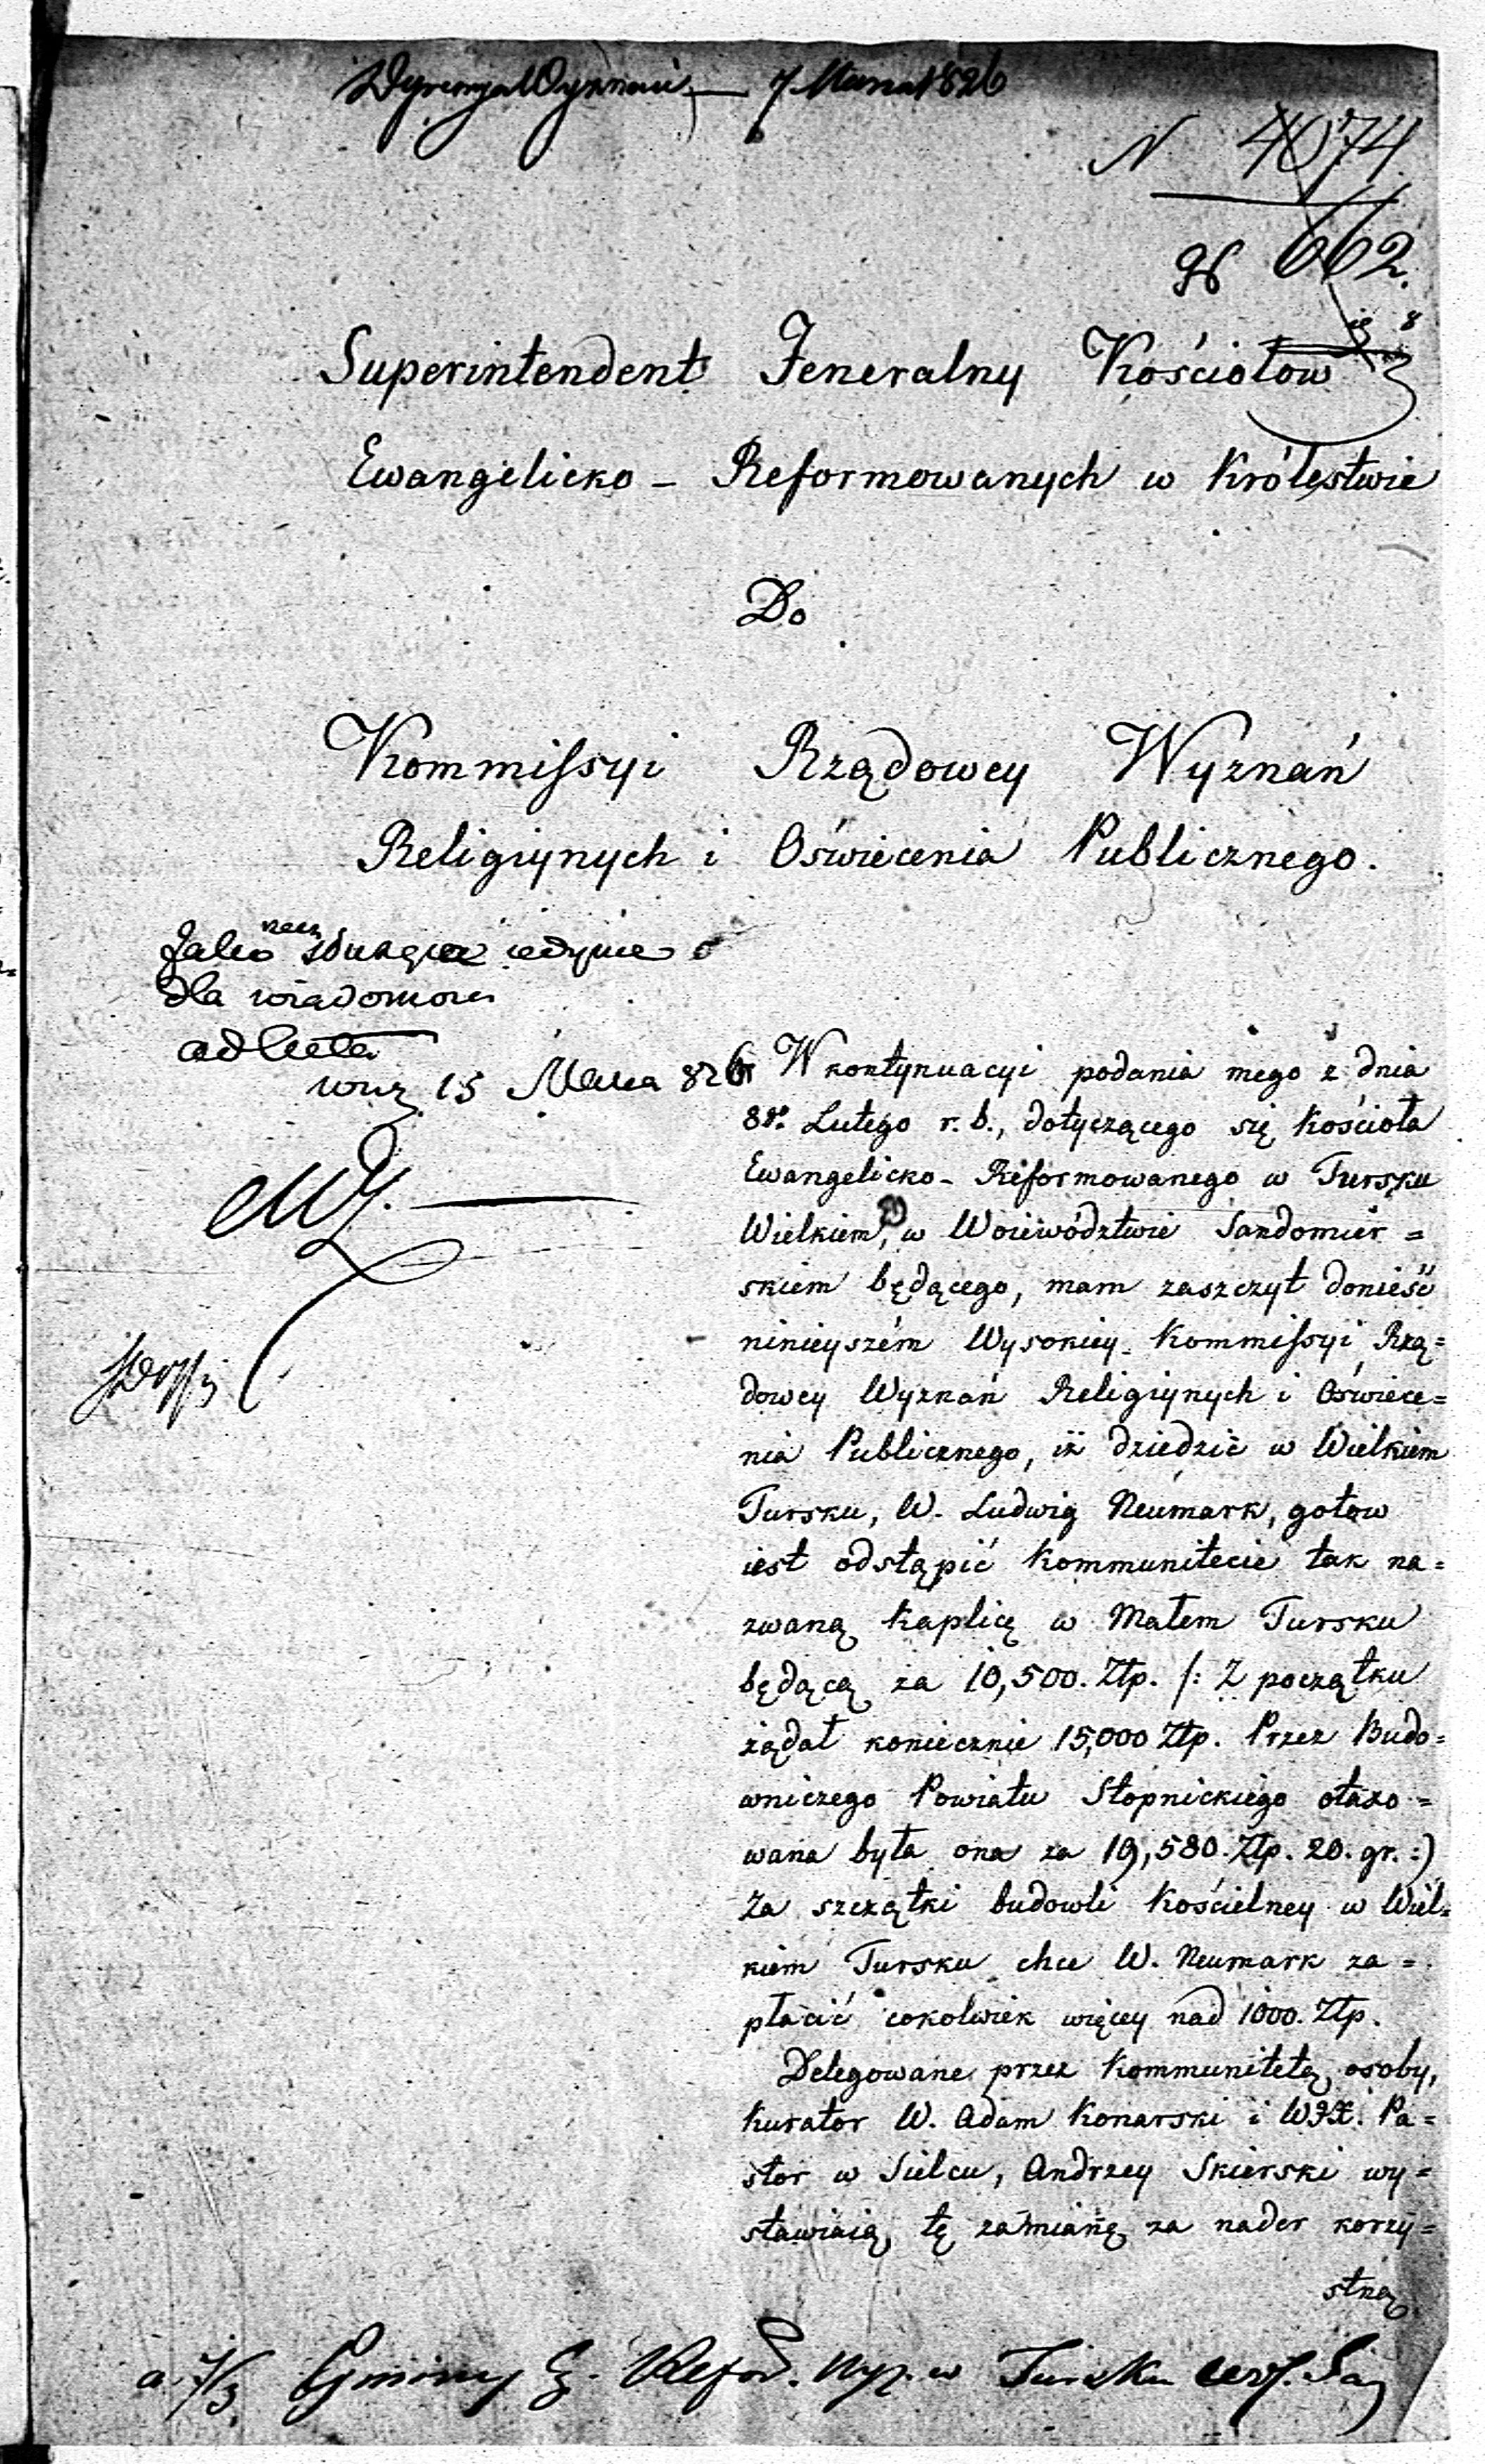 7 Marca 1826
N 4074.
662.
Superintendent Jeneralny Kościołow
Ewangelicko - Reformowanych w Królestwie
Do
Kommissyi Rządowey Wyznań
Religiynych i Oświecenia Publicznego.
Jako rzecz służąca iedynie
dla wiadomości
ad acta
15 Marca 826
W kontynuacyi podania mego z dnia
88º Lutego r. b., dotyczącego się Kościoła
Ewangelicko - Reformowanego w Tursku
Wielkiem, w Woiewództwie Sandomier =
skiem będącego, mam zaszczyt donieść
ninieyszém Wysokiey Kommissyi Rzą=
dowey Wyznań Religiynych i Oświece=
nia Publicznego, iż dziedzic w Wielkiem
Tursku, W. Ludwig Neumark, gotow
iest odstąpić Kommunitecie tak na =
zwaną Kaplicę w Małem Tursku
będącą za 10,500. Złp. /: Z początku
żądał koniecznie 15,000 Złp. Przez Budo=
wniczego Powiatu Stopnickiego otaxo =
wana była ona za 19,580. Złp. 20. gr. :)
Za szczątki budowli Kościelney w Wiel=
kiem Tursku chce W. Neumark za =
płacić cokolwiek więcey nad 1000. Złp.
Delegowane przez Kommunitetę osoby,
Kurator W. Adam Konarski i WJX. Pa =
stor w Sielcu, Andrzey Skierski wy =
stawiaią tę zamianę za nader korzy =
stną
a 7/3 Gminy E. Refor. Wyz. w Tursku